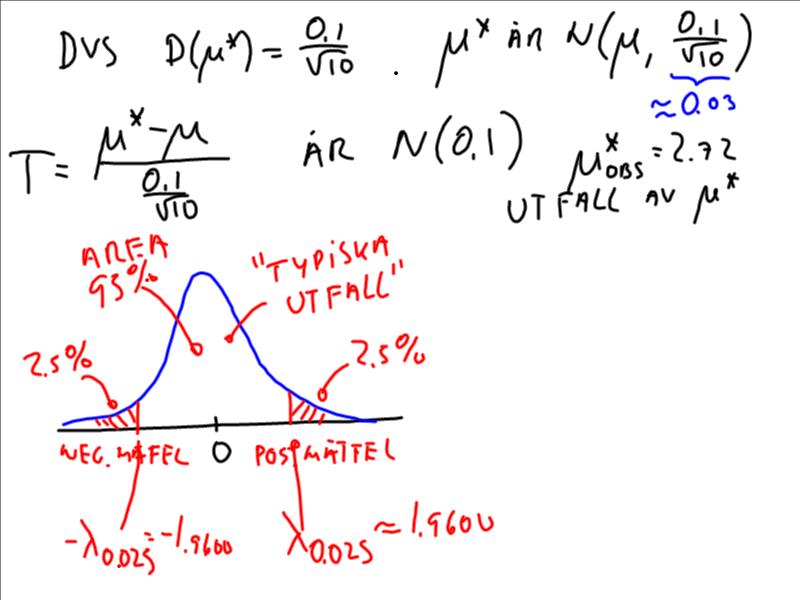 DVS D(μ*) = 0.1/√10 . μ* ÄR N(μ, 0.1/√10)
≈ 0.03
T = (μ* − μ)/(0.1/√10) ÄR N(0.1)
μ*OBS = 2.72
UTFALL AV μ*
AREA
93%
"TYPISKA
UTFALL"
2.5%
2.5%
NEG. MÄFEL 0 POS MÄTFEL
−λ0.025 = −1.9600
λ0.025 ≈ 1.9600